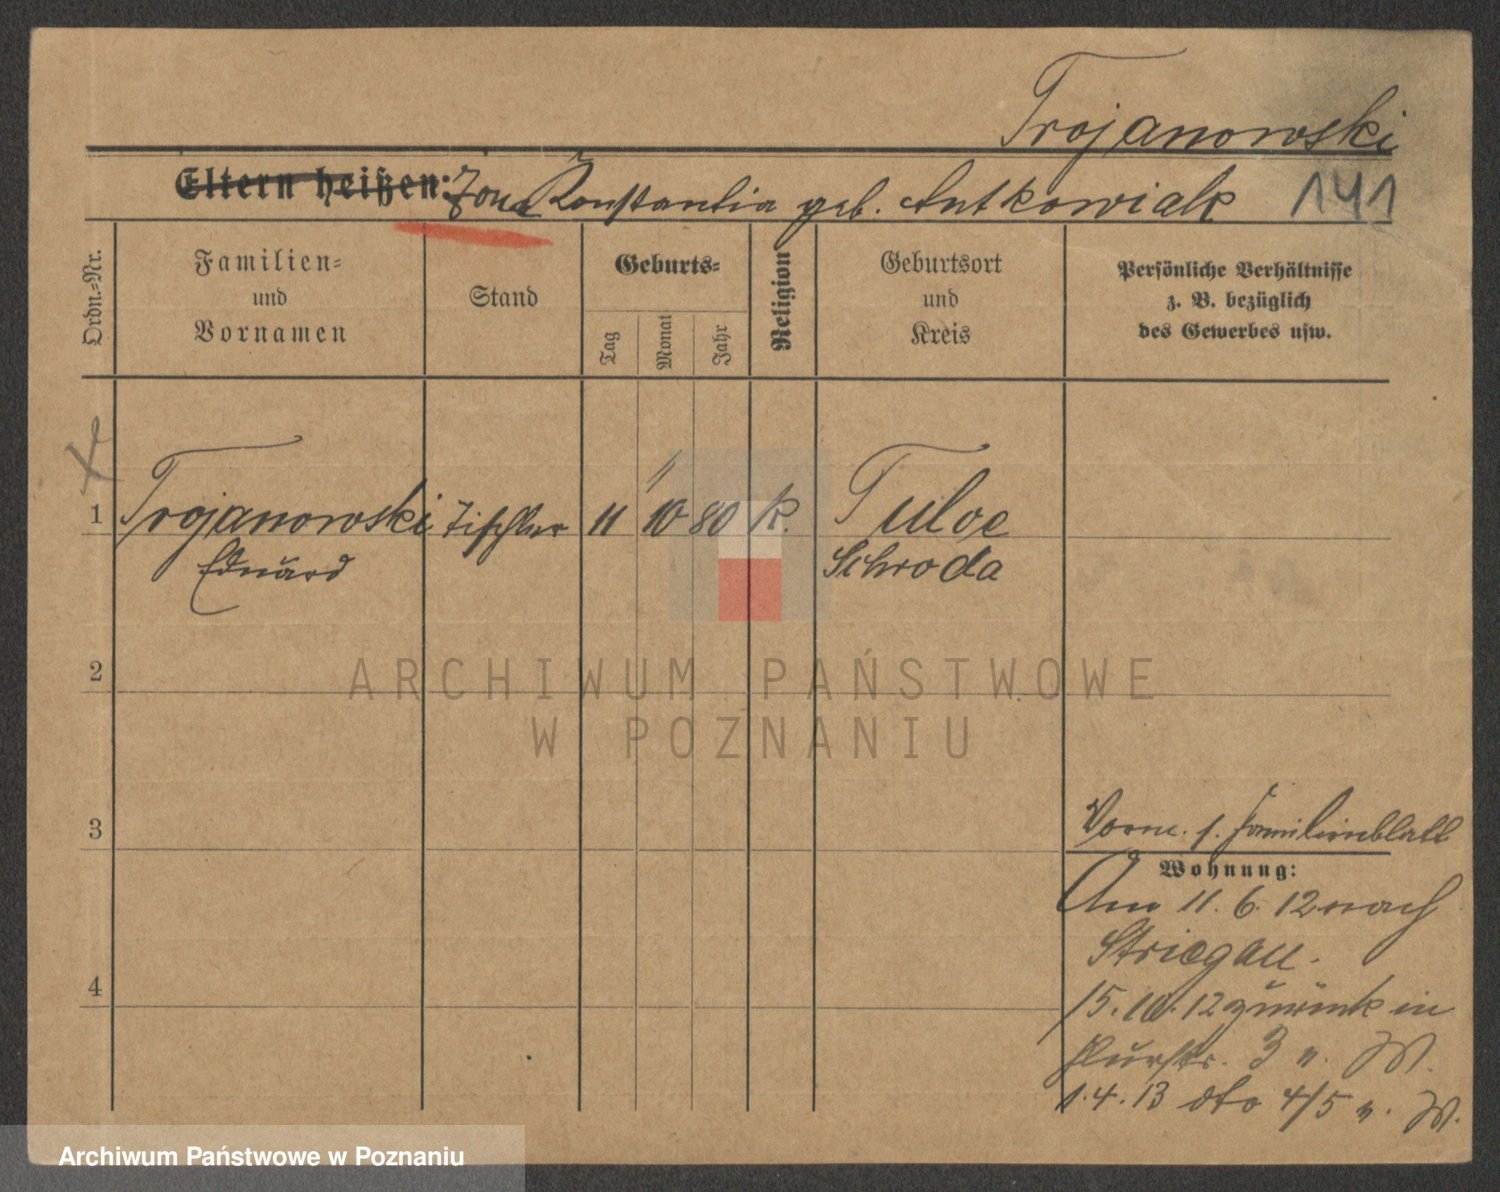 Trojanowski
Eltern heißen: Frau Konstantia geb. Antkowiak 141
Ordn.-Nr.
Familien-
und
Vornamen
Stand
Geburts-
Tag
Monat
Jahr
Religion
Geburtsort
und
Kreis
Persönliche Verhältnisse
z. B. bezüglich
des Gewerbes usw.
1 Trojanowski Tischler 11 10 80 k. Tulce
Eduard Schroda
2
ARCHIWUM PAŃSTWOWE
W POZNANIU
3
Vorne. s. Familienblatt
Wohnung:
Am 11. 6. 12 nach
Striegau.
4
15. 10. 12 zurück in
Flurstr. 3 v. W.
1. 4. 13 dto 4/5 v. W.
Archiwum Państwowe w Poznaniu